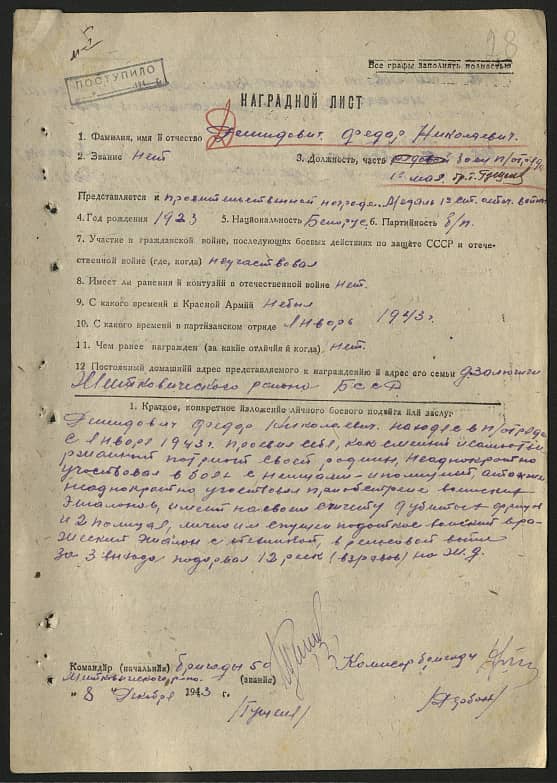 28
Все графы заполнять полностью
ПОСТУПИЛО
НАГРАДНОЙ ЛИСТ
1. Фамилия, имя й отчество Демидович Федор Николаевич.
2. Звание нет 3. Должность, часть п/отр.
1е мая
Представляется к правительственной награде Медаль 1й ст.
4. Год рождения 1923 5. Национальность Белорус 6. Партийность б/п.
7. Участие в гражданской войне, последующих боевых действиях по защйте СССР и отече-
ственной войне (где, когда) неучаствовал
8. Имеет ли ранения й контузий в отечественной войне нет.
9. С какого временй в Красной Армйй небыл
10. С какого временй в партйзанском отряде Январь 1943 г.
11. Чем ранее награжден (за какйе отлйчйя й когда) нет.
12 Постоянный домашнйй адрес представляемого к награжденйю й адрес его семьй
Житковичского района БССР
1. Краткое, конкретное йзложенйе лйчного боевого подвйга йлй заслуг
Демидович Федор Николаевич находясь в п/отряде
с Января 1943 г. проявил себя, как смелый и самоотвер
женный патриот своей родины, неоднократно
участвовал в боях с немцами
неоднократно участвовал при обстреле воинских
эшалонов, имеет на своем счету 9 убитых фрицев
и 2 полицая, лично им спущен под откос воинский вра-
жеский эшалон с в рельсовой войне
за 3 выхода подорвал 12 рельс (взрывов) на ж.д.
Командйр (начальнйк) бригады 50 (званйе) Комисар бригады
Житковичского
" 8 " декабря 1943 г.